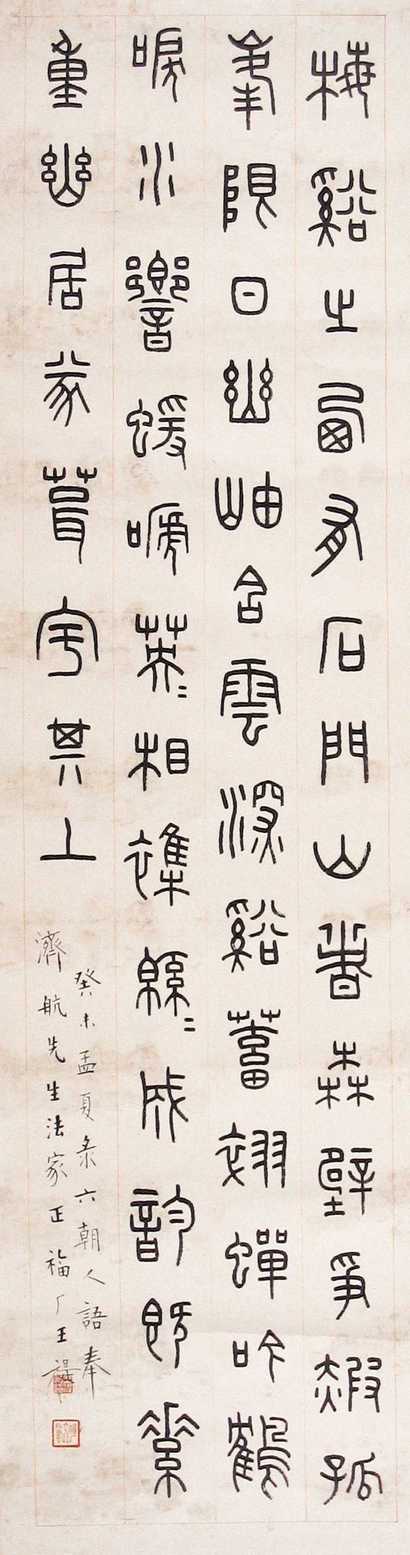 梅谿之西有石門山者森壁爭赮孤
峯限日幽岫含雲深谿蓄翠蟬吟鶴
唳水響蝯嗁英〻相雜緜〻成韵既素
重幽居遂葺宇其上
癸未孟夏彔六朝人語奉
濟航先生法家正福厂王禔